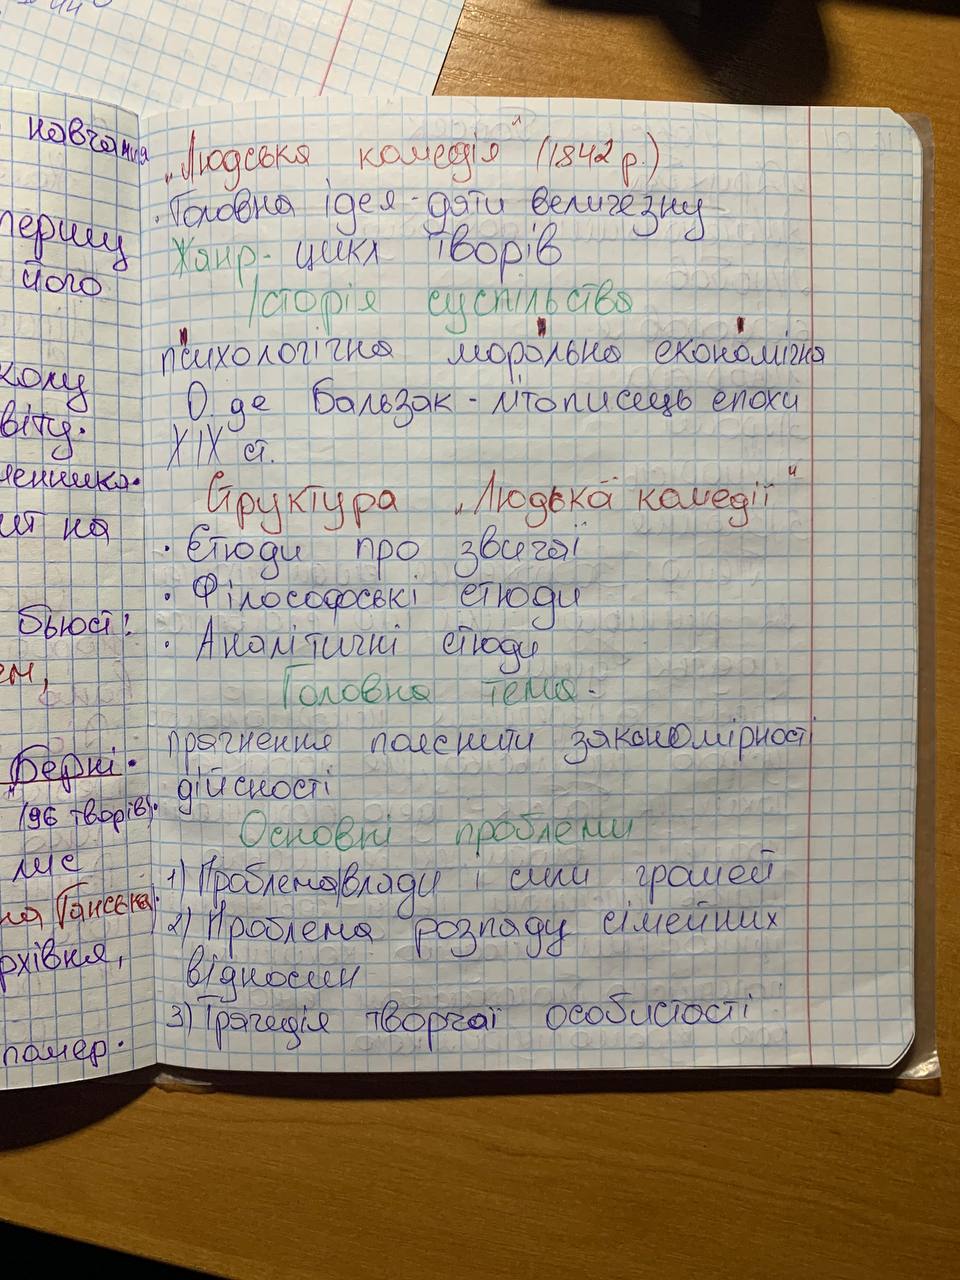 навчання
першу
його
кому
віту.
ченника.
ит на
бьюсі:
ем,
Берні.
(96 творів).
лис
на Ганська).
рхівня,
помер.
„Людська комедія" (1842 р.)
. Головна ідея - дати величезну
Жанр - цикл творів
Історія суспільства
психологічна моральна економічна
О. де Бальзак - літописець епохи
XIX ст.
Структура „Людської комедії"
• Етюди про звичаї
• Філософські етюди
• Аналітичні етюди
Головна тема -
прагнення пояснити закономірності
дійсності
Основні проблеми
1) Проблема влади і сили грошей
2) Проблема розпаду сімейних
відносин
3) Трагедія творчої особистості